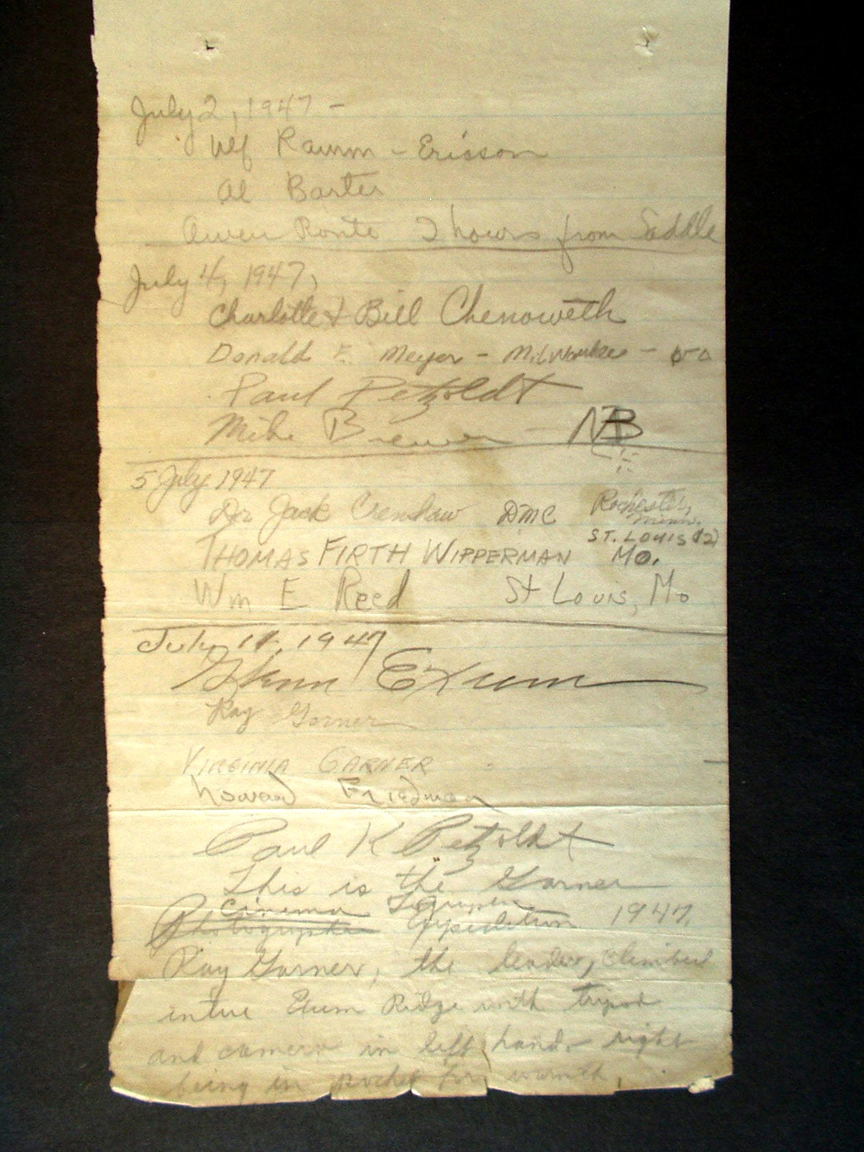 July 2, 1947 -
Ulf Ramm - Ericson
Al Baxter
Owen Route 2 hours from Saddle
July 4, 1947,
Charlotte & Bill Chenoweth
Donald E. Meyer - Milwaukee -
Paul Petzoldt
Mike Brewer - MB
5 July 1947
Dr Jack Crenshaw DMC Rochester, Minn.
THOMAS FIRTH WIPPERMAN ST. LOUIS (12) MO.
Wm E Reed St Louis, Mo
July 11, 1947
Glenn Exum
Ray Garner
VIRGINIA GARNER
Howard Friedman
Paul K Petzoldt
This is the Garner
Cinema
Photographic Expedition 1947.
Ray Garner, the leader, climbed
intire Exum Ridge with tripod
and camera in left hand - right
being in pocket for warmth.